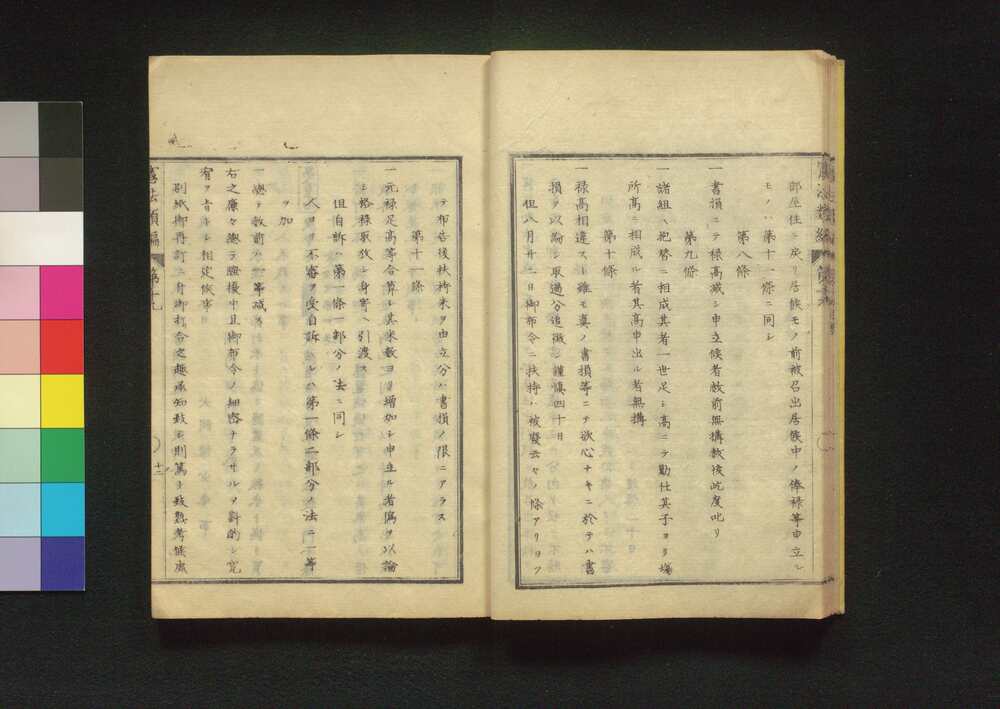 部屋住ニ戻リ居候モノ前被召出居候中ノ俸祿等申立シ
モノハ第十一條ニ同シ
第八條
一書損ニテ祿高減シ申立候者赦前無構赦後此度叱リ
第九條
一諸組ヘ抱替ニ相成其者一世足シ高ニテ勤仕其子ヨリ
所高ニ相成ル者其高申出ル者無構
第十條
一祿高相違スト雖モ眞ノ書損等ニテ欲心ナキニ於テハ書
損ヲ以論シ取過分追徴シ謹愼四十日
但八月廿二日御布令ニ扶持ハ被廢云々ノ條アリヨツ
テ布告後扶持米ヲ申立分ハ書損ノ限ニアラス
第十一條
一元祿足高等合算シ其米數ヨリ增加シ申立ル者僞ヲ以論
シ給祿取放シ身寄ヘ引渡ス
但自訴ハ第一條一部分ノ法ニ同シ
人ヨリ不審ヲ受自訴シルハ第一條二部分ノ法ニ一等
ヲ加
一總テ赦前ハ等減
右之廉々總テ騷擾中且御布令ノ細密ナラサルヲ斟酌シ寬
宥ヲ旨トシ相定候事
別紙御再訂ニ付御打合之趣承知致シ則篤ト致熟考候處
憲法類編
第十九
十二